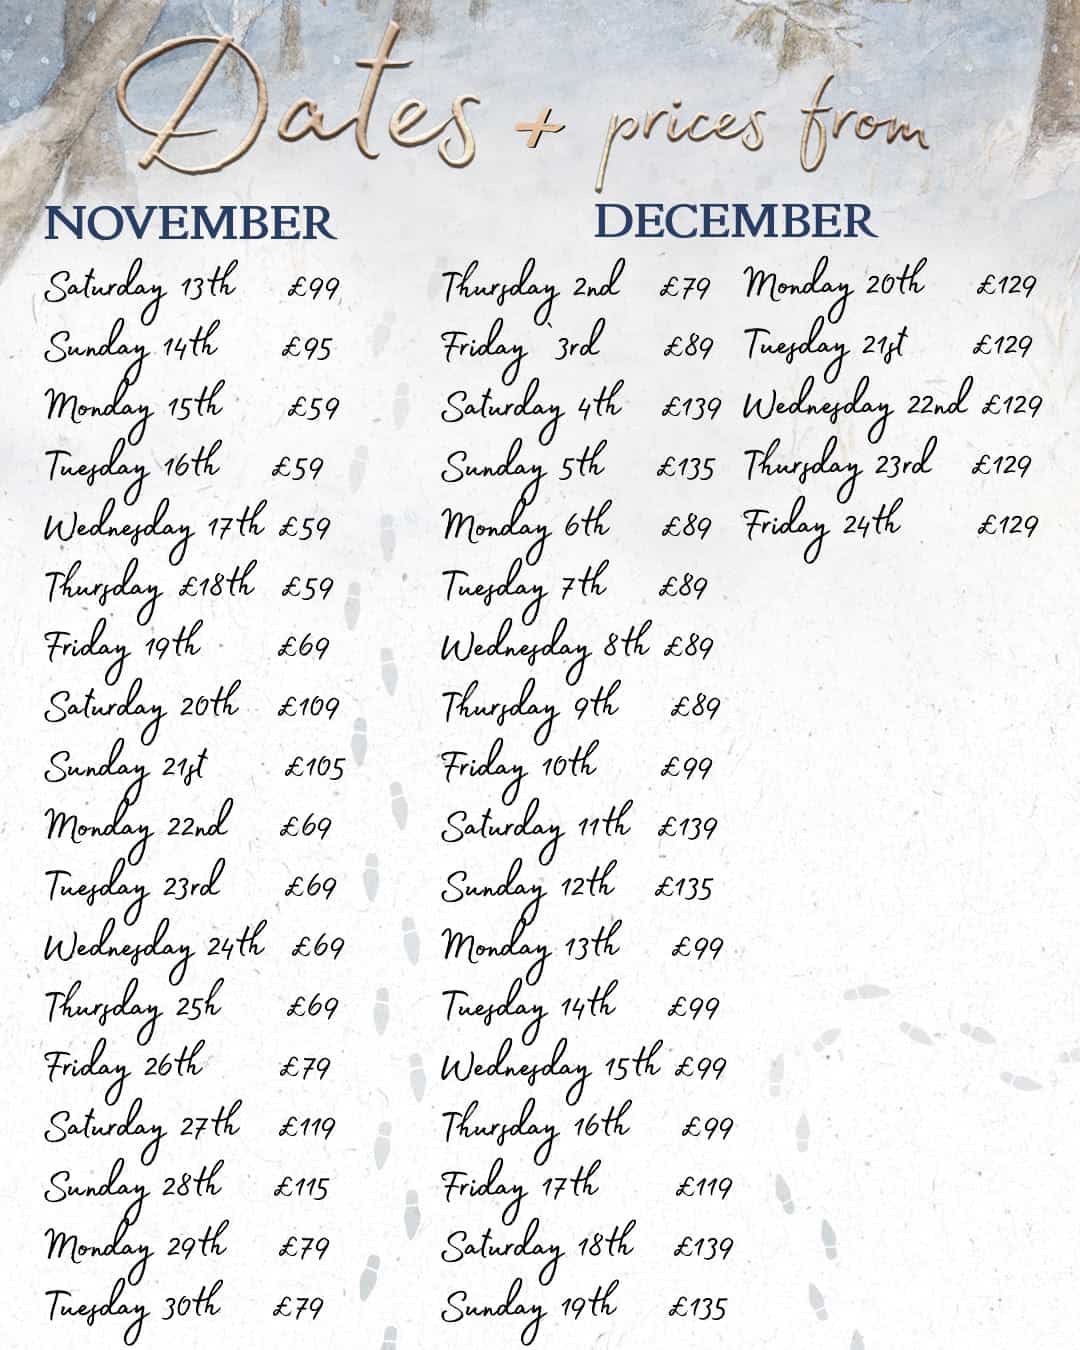 Dates + prices from
NOVEMBER
Saturday 13th £99
Sunday 14th £95
Monday 15th £59
Tuesday 16th £59
Wednesday 17th £59
Thursday £18th £59
Friday 19th £69
Saturday 20th £109
Sunday 21st £105
Monday 22nd £69
Tuesday 23rd £69
Wednesday 24th £69
Thursday 25h £69
Friday 26th £79
Saturday 27th £119
Sunday 28th £115
Monday 29th £79
Tuesday 30th £79
DECEMBER
Thursday 2nd £79
Friday `3rd £89
Saturday 4th £139
Sunday 5th £135
Monday 6th £89
Tuesday 7th £89
Wednesday 8th £89
Thursday 9th £89
Friday 10th £99
Saturday 11th £139
Sunday 12th £135
Monday 13th £99
Tuesday 14th £99
Wednesday 15th £99
Thursday 16th £99
Friday 17th £119
Saturday 18th £139
Sunday 19th £135
Monday 20th £129
Tuesday 21st £129
Wednesday 22nd £129
Thursday 23rd £129
Friday 24th £129